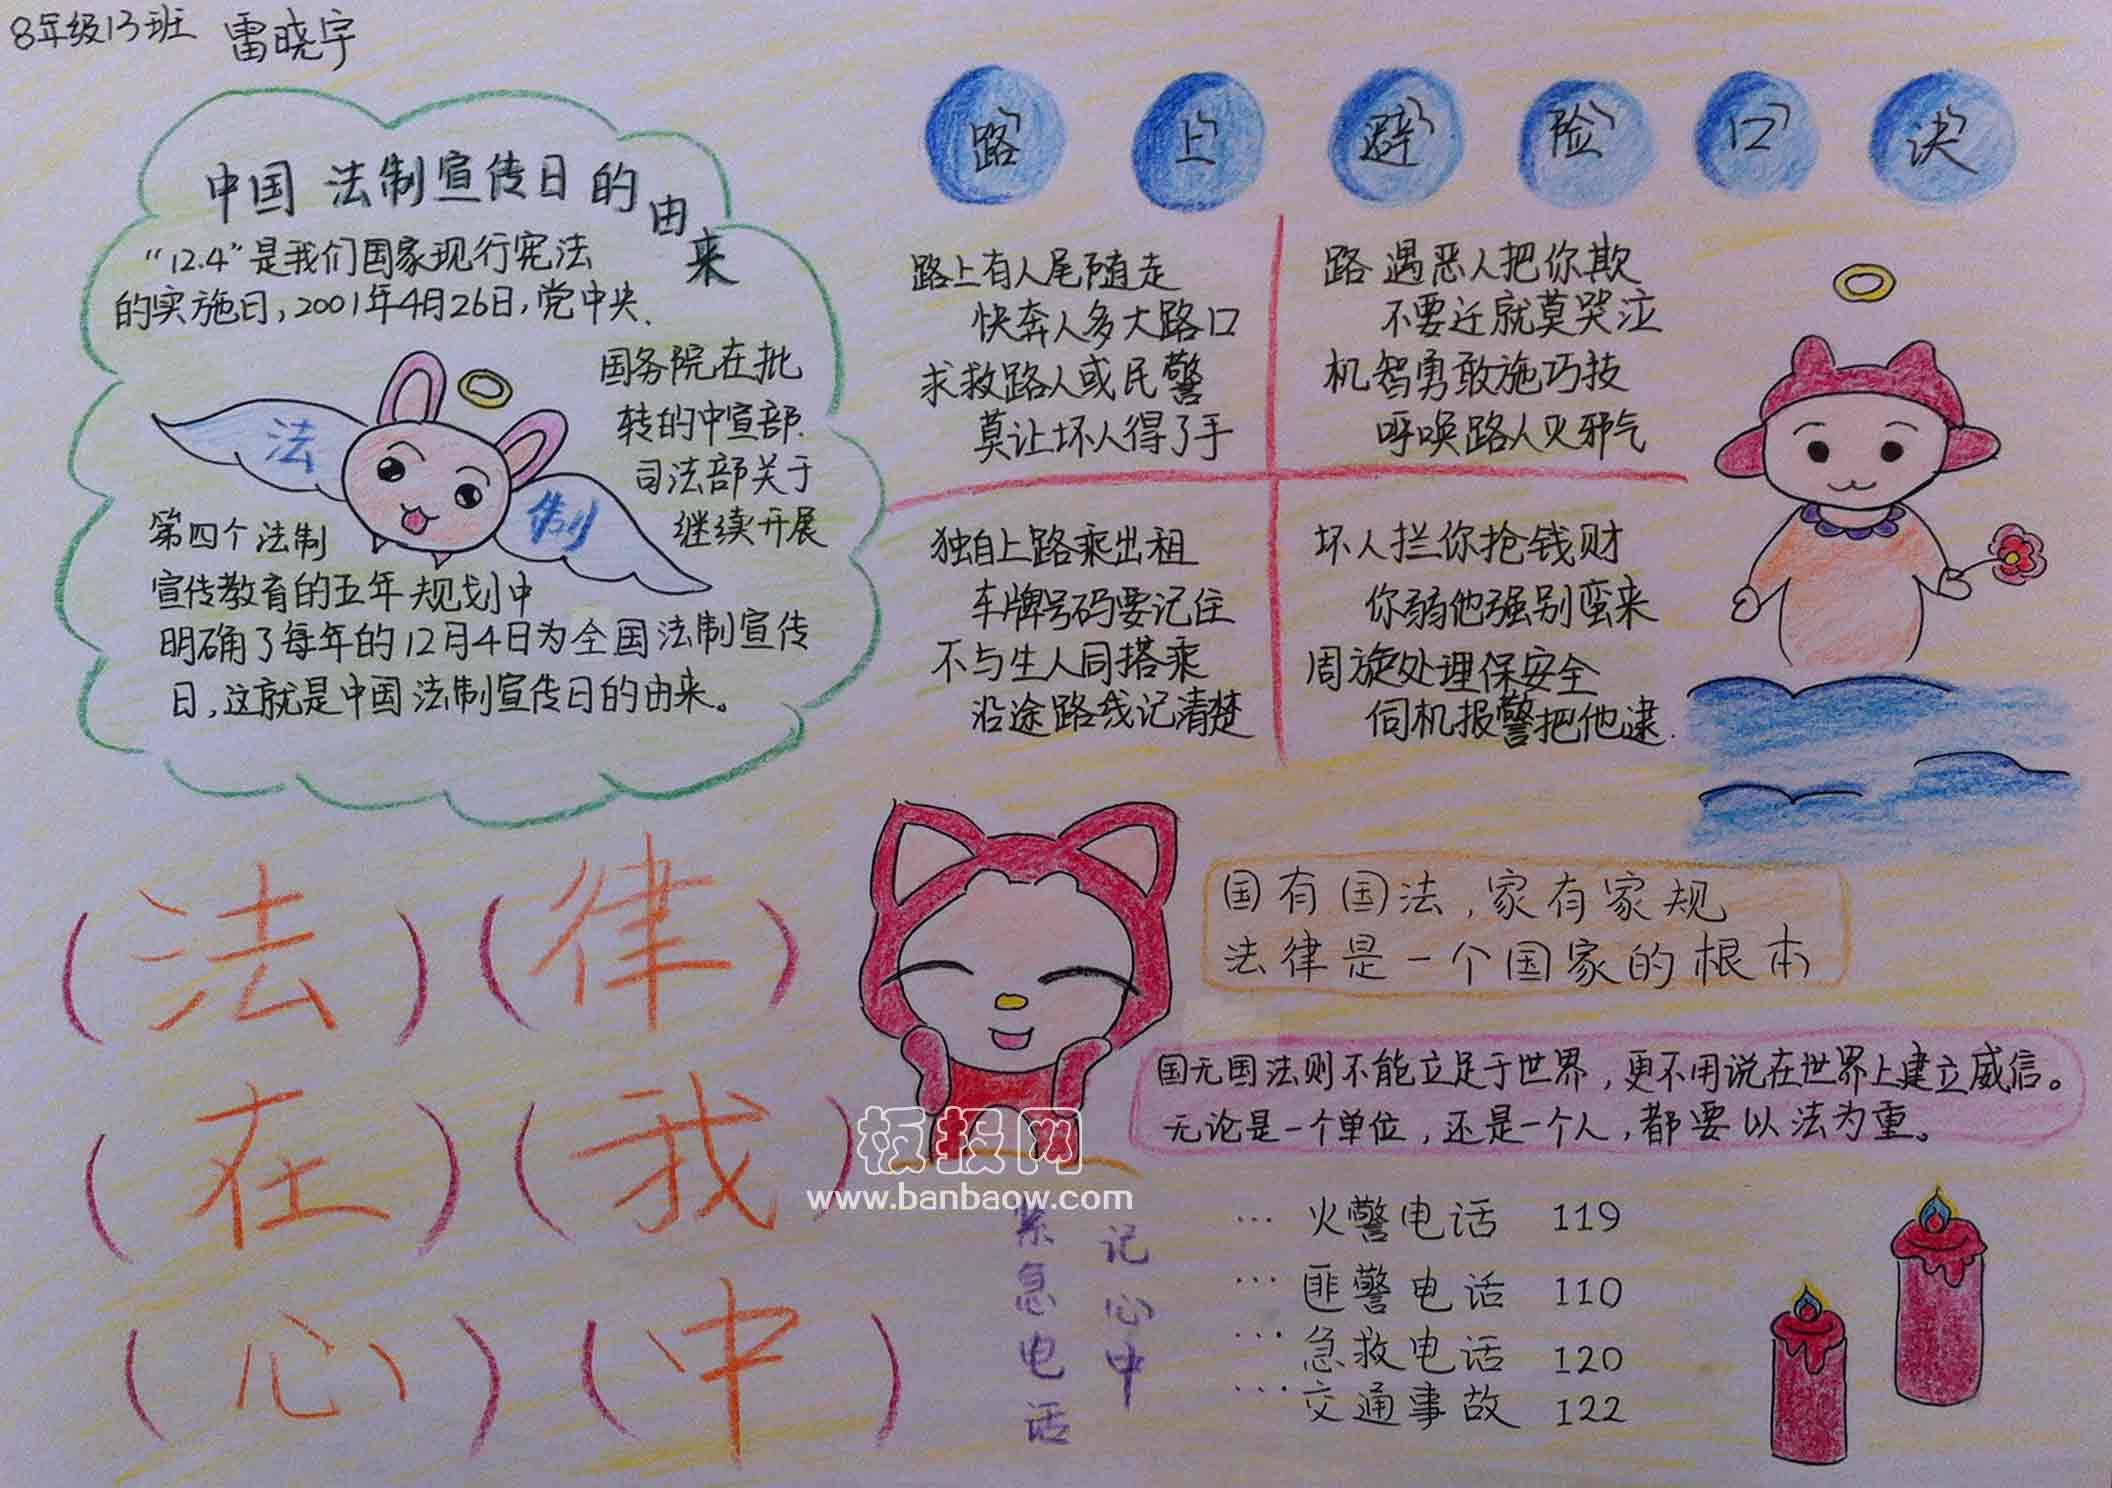 8年级13班 雷晓宇
中国 法制宣传日的由来
“12.4”是我们国家现行宪法
的实施日,2001年4月26日,党中央、
国务院在批
转的中宣部、
司法部关于
继续开展
法制
第四个法制
宣传教育的五年规划中
明确了每年的12月4日为全国法制宣传
日,这就是中国法制宣传日的由来。
路上避险口决
路上有人尾随走
快奔人多大路口
求救路人或民警
莫让坏人得了手
路遇恶人把你欺
不要迁就莫哭泣
机智勇敢施巧技
呼唤路人灭邪气
独自上路乘出租
车牌号码要记住
不与生人同搭乘
沿途路线记清楚
坏人拦你抢钱财
你弱他强别蛮来
周旋处理保安全
伺机报警把他逮.
(法)(律)
(在)(我)
(心)(中)
国有国法,家有家规
法律是一个国家的根本
国无国法则不能立足于世界,更不用说在世界上建立威信。
无论是一个单位,还是一个人,都要以法为重。
板报网
www.banbaow.com
紧急电话
记心中
… 火警电话 119
… 匪警电话 110
… 急救电话 120
… 交通事故 122